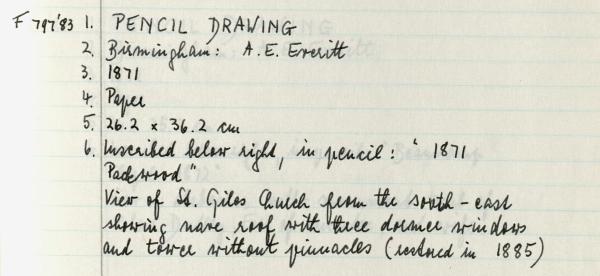 F 797'83 1. PENCIL DRAWING
2. Birmingham: A.E. Everitt
3. 1871
4. Paper
5. 26.2 x 36.2 cm
6. Inscribed below right, in pencil: " 1871
Packwood"
View of St. Giles Church from the south-east
showing nave roof with three dormer windows
and tower without pinnacles (restored in 1885)